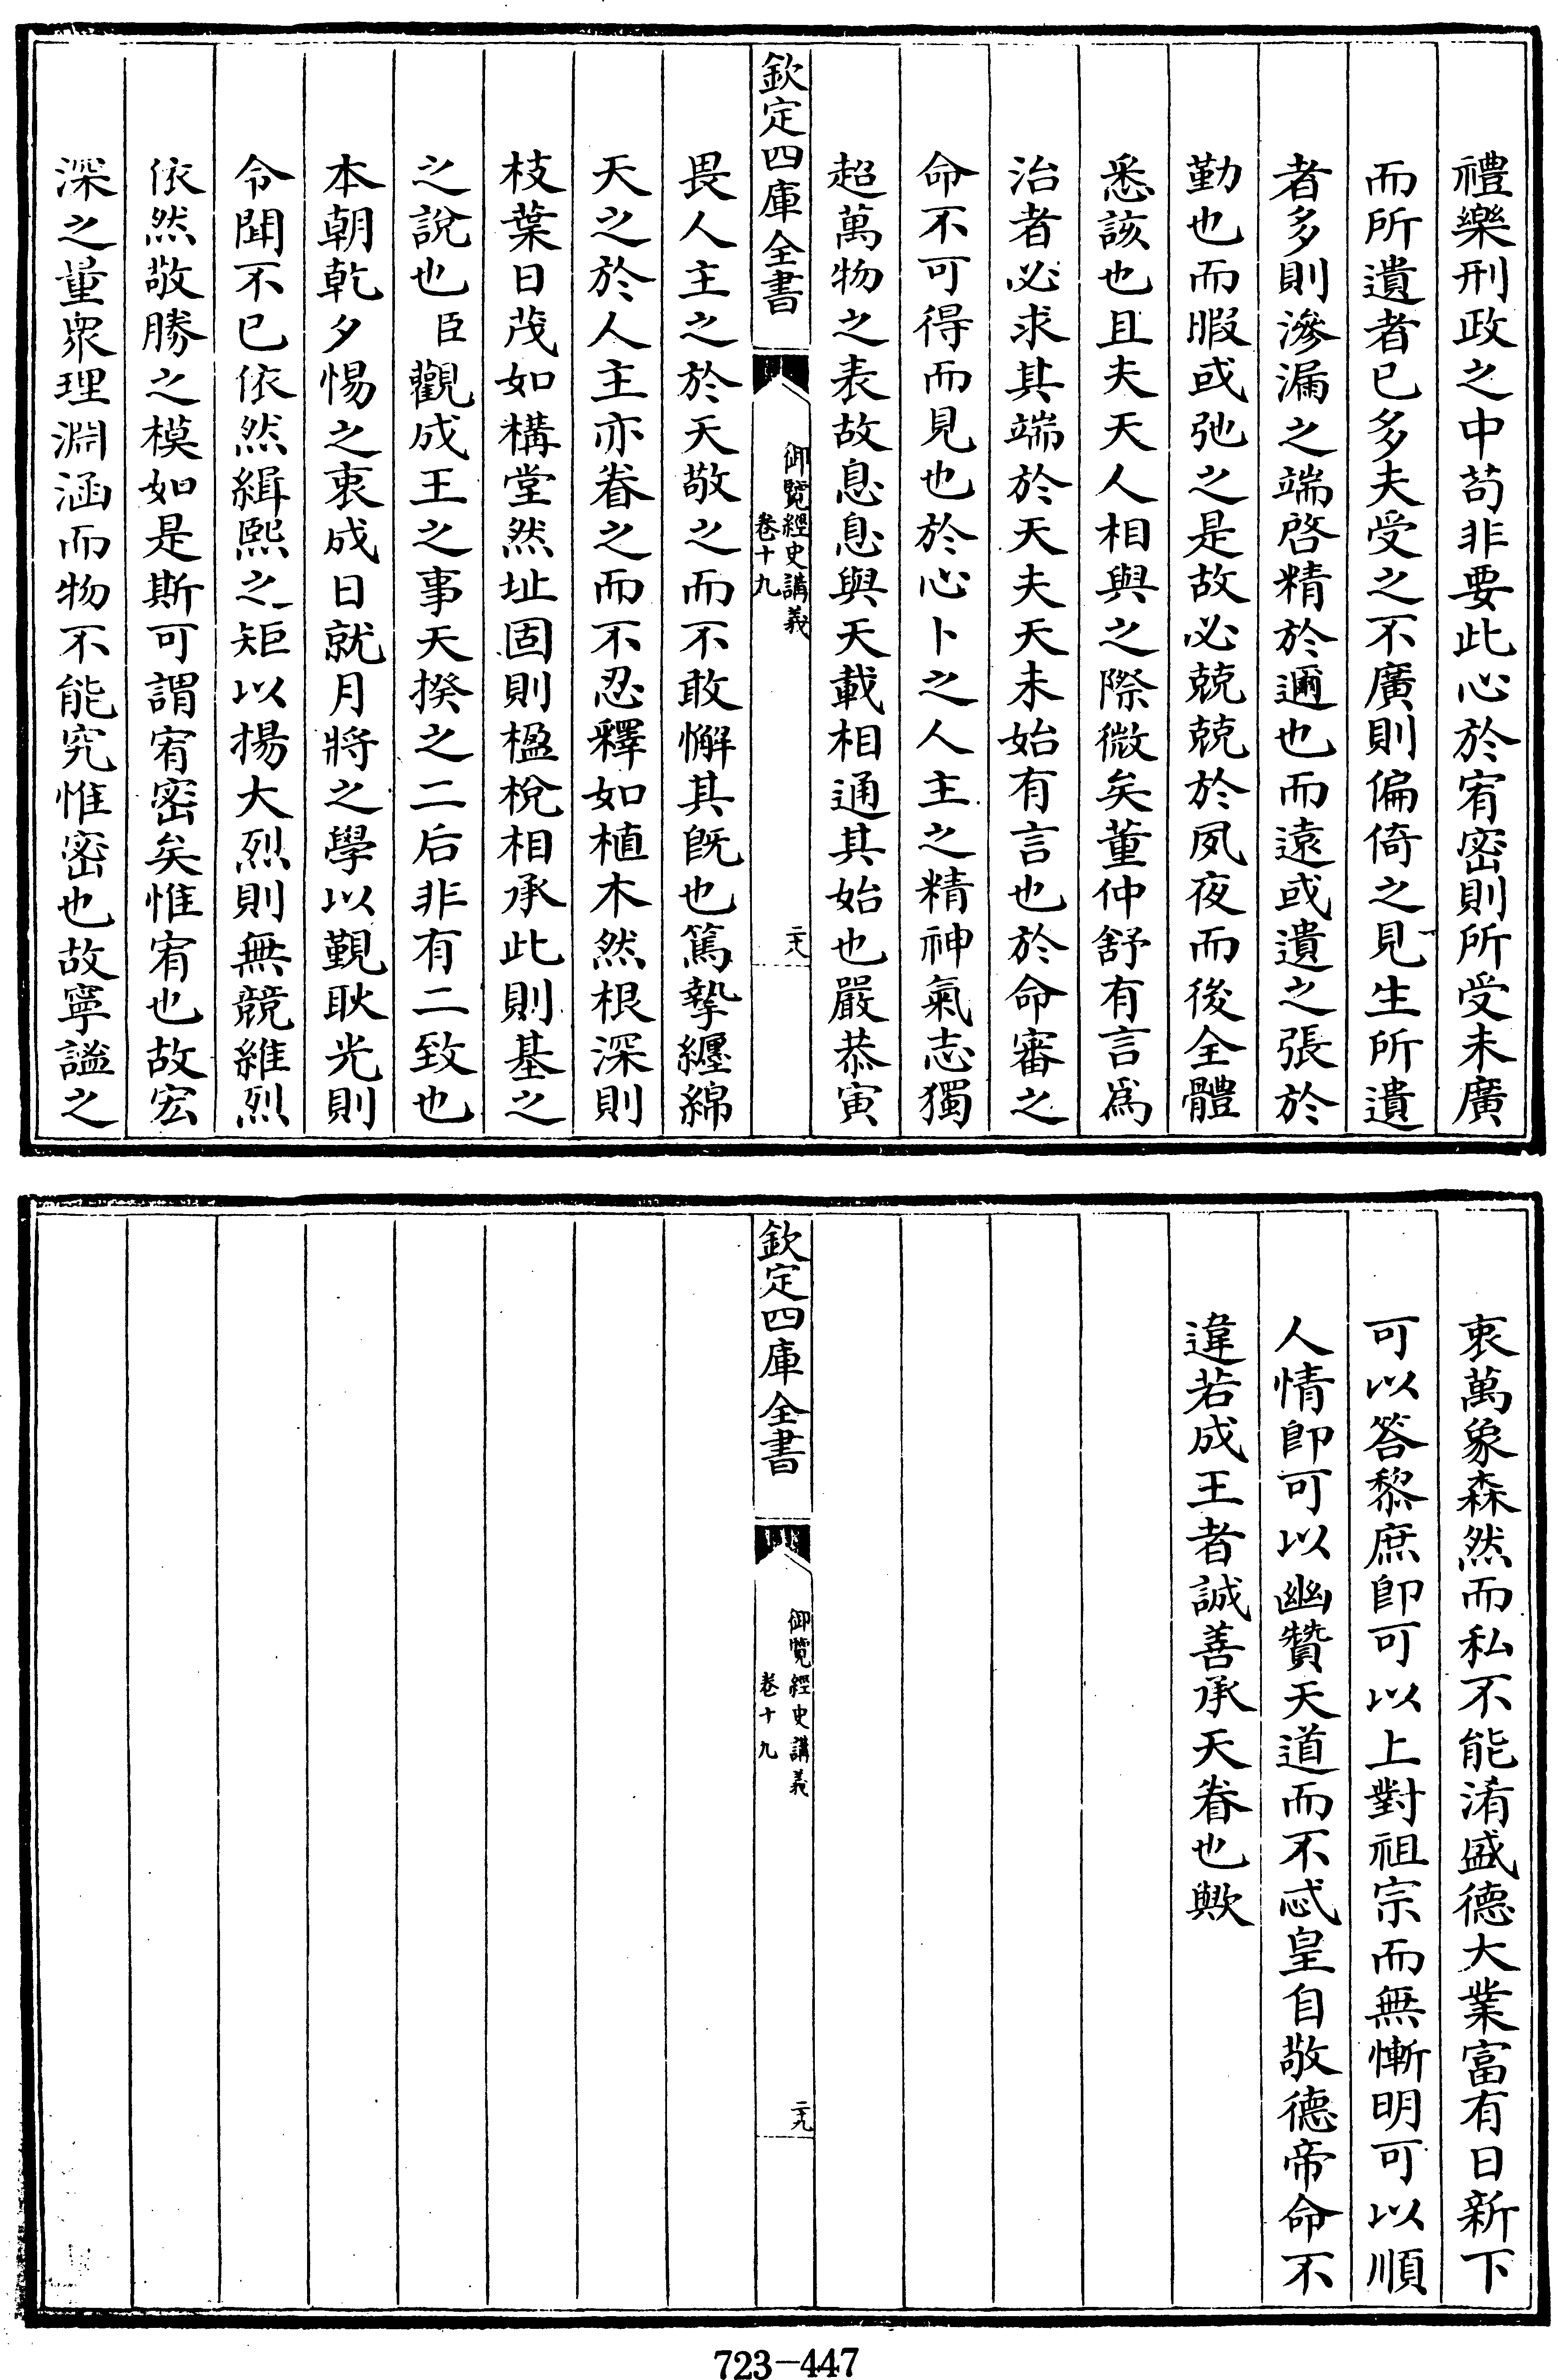 禮樂刑政之中苟非要此心於宥密則所受未廣
而所遺者已多夫受之不廣則偏倚之見生所遺
者多則滲漏之端啓精於邇也而遠或遺之張於
勤也而暇或弛之是故必兢兢於夙夜而後全體
悉該也且夫天人相與之際微矣董仲舒有言爲
治者必求其端於天夫天未始有言也於命審之
命不可得而見也於心卜之人主之精神氣志獨
超萬物之表故息息與天載相通其始也嚴恭寅
欽定四庫全書
御覽經史講義
卷十九
二十八
畏人主之於天敬之而不敢懈其旣也篤摯纏綿
天之於人主亦眷之而不忍釋如植木然根深則
枝葉日茂如構堂然址固則楹梲相承此則基之
之說也臣觀成王之事天揆之二后非有二致也
本朝乾夕惕之衷成日就月將之學以覲耿光則
令聞不已依然緝熙之矩以揚大烈則無競維烈
依然敬勝之模如是斯可謂宥密矣惟宥也故宏
深之量衆理淵涵而物不能究惟密也故寧謐之
衷萬象森然而私不能淆盛德大業富有日新下
可以答黎庶卽可以上對祖宗而無慚明可以順
人情卽可以幽贊天道而不忒皇自敬德帝命不
違若成王者誠善承天眷也歟
欽定四庫全書
御覽經史講義
卷十九
二十九
723-447